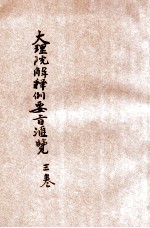 大理院解释例要旨滙覽 三卷